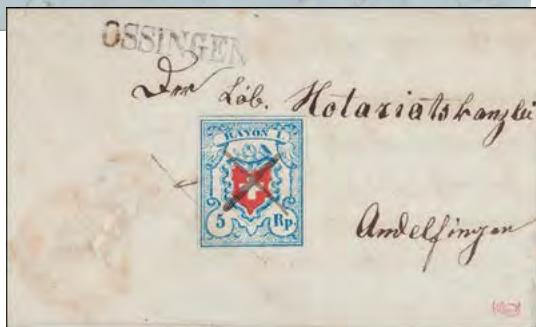 OSSINGEN
Der Löb. Notariatskanzlei
RAYON I.
5 Rp.
Andelfingen